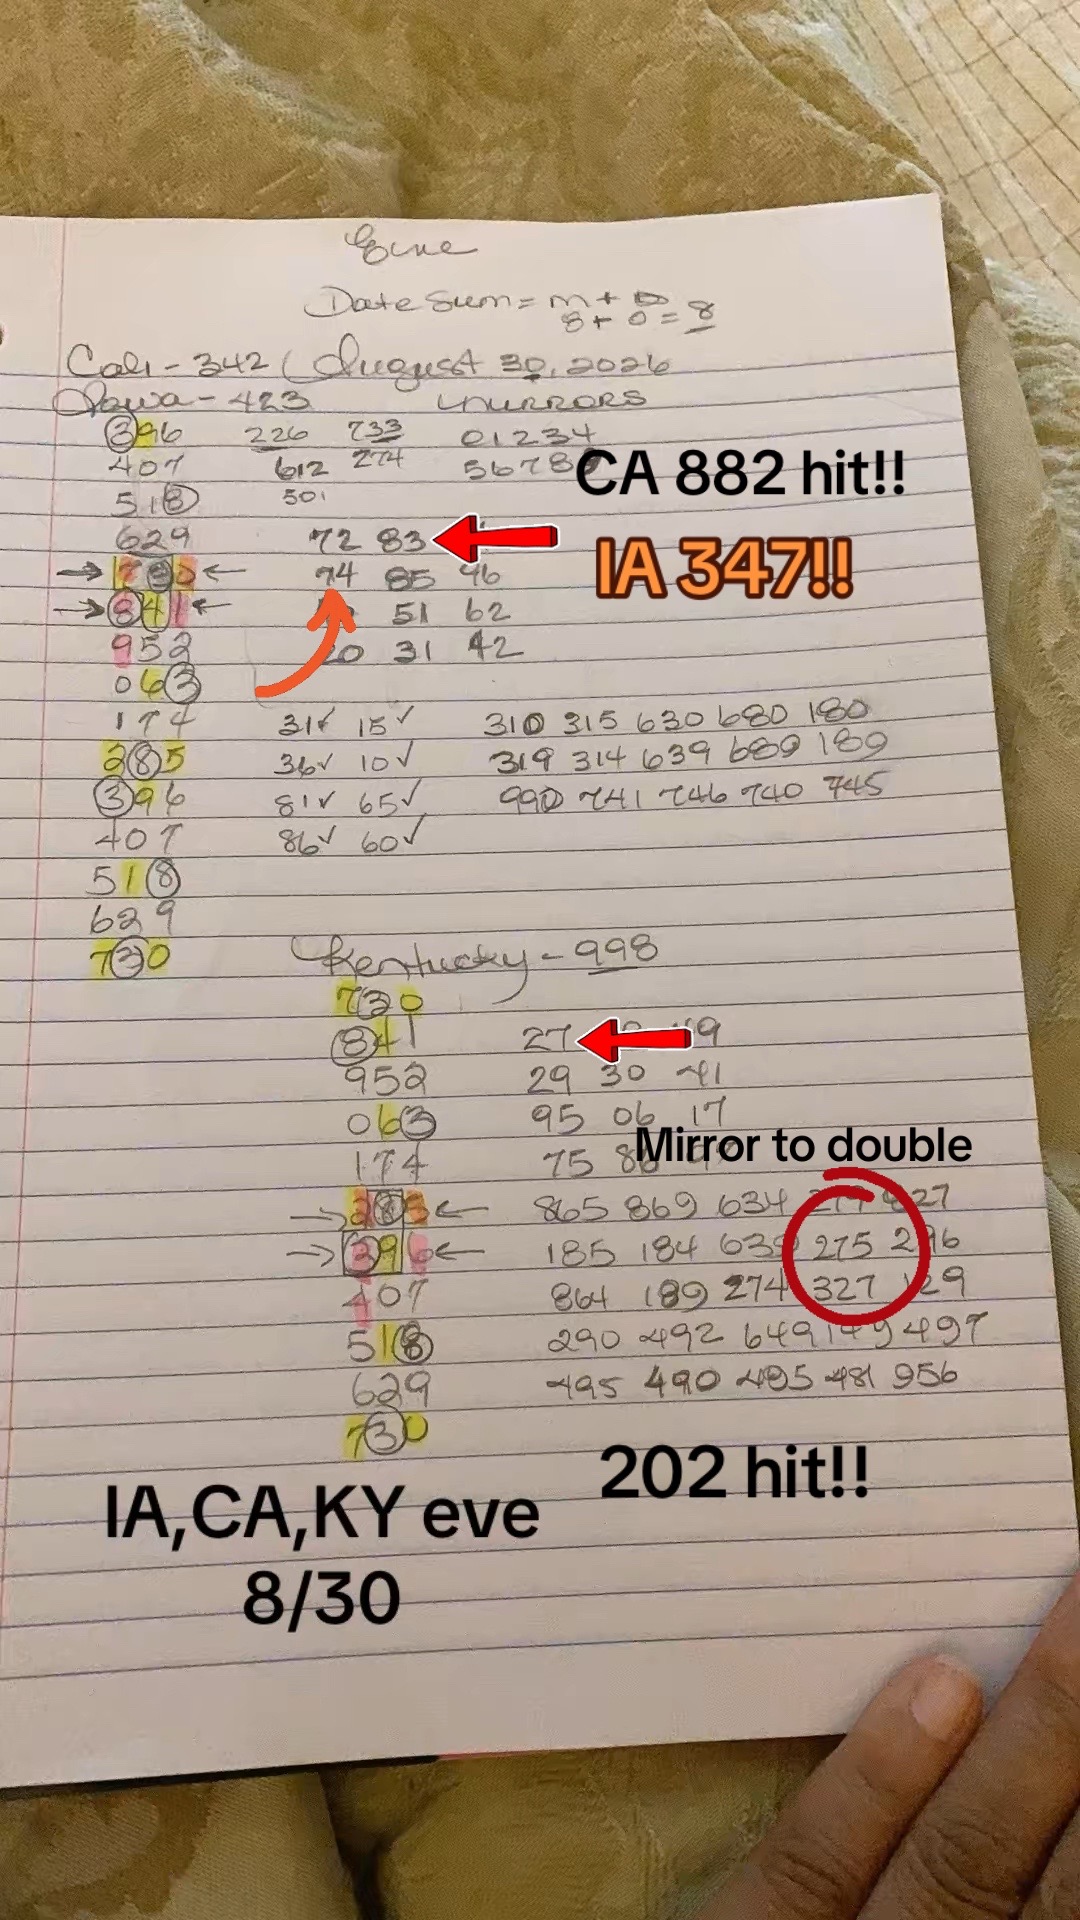 Eve
Date Sum = m + D
8 + 0 = 8
Cali - 342 (August 30, 2026
Iowa - 423 mirrors
396 226 733 01234
407 612 274 56789
518 501
CA 882 hit!!
629 72 83
IA 347!!
730 74 85 96
841 51 62
952 20 31 42
063
174 31✓ 15✓ 310 315 630 680 180
285 36✓ 10✓ 319 314 639 689 189
396 81✓ 65✓ 990 741 746 740 745
407 86✓ 60✓
518
629
730 Kentucky - 998
730
841 27 49
952 29 30 41
063 95 06 17
Mirror to double
174 75 86 97
285 865 869 634 274 427
396 185 184 639 275 296
407 864 189 274 327 129
518 290 492 649 149 497
629 495 490 485 481 956
730
202 hit!!
IA,CA,KY eve
8/30